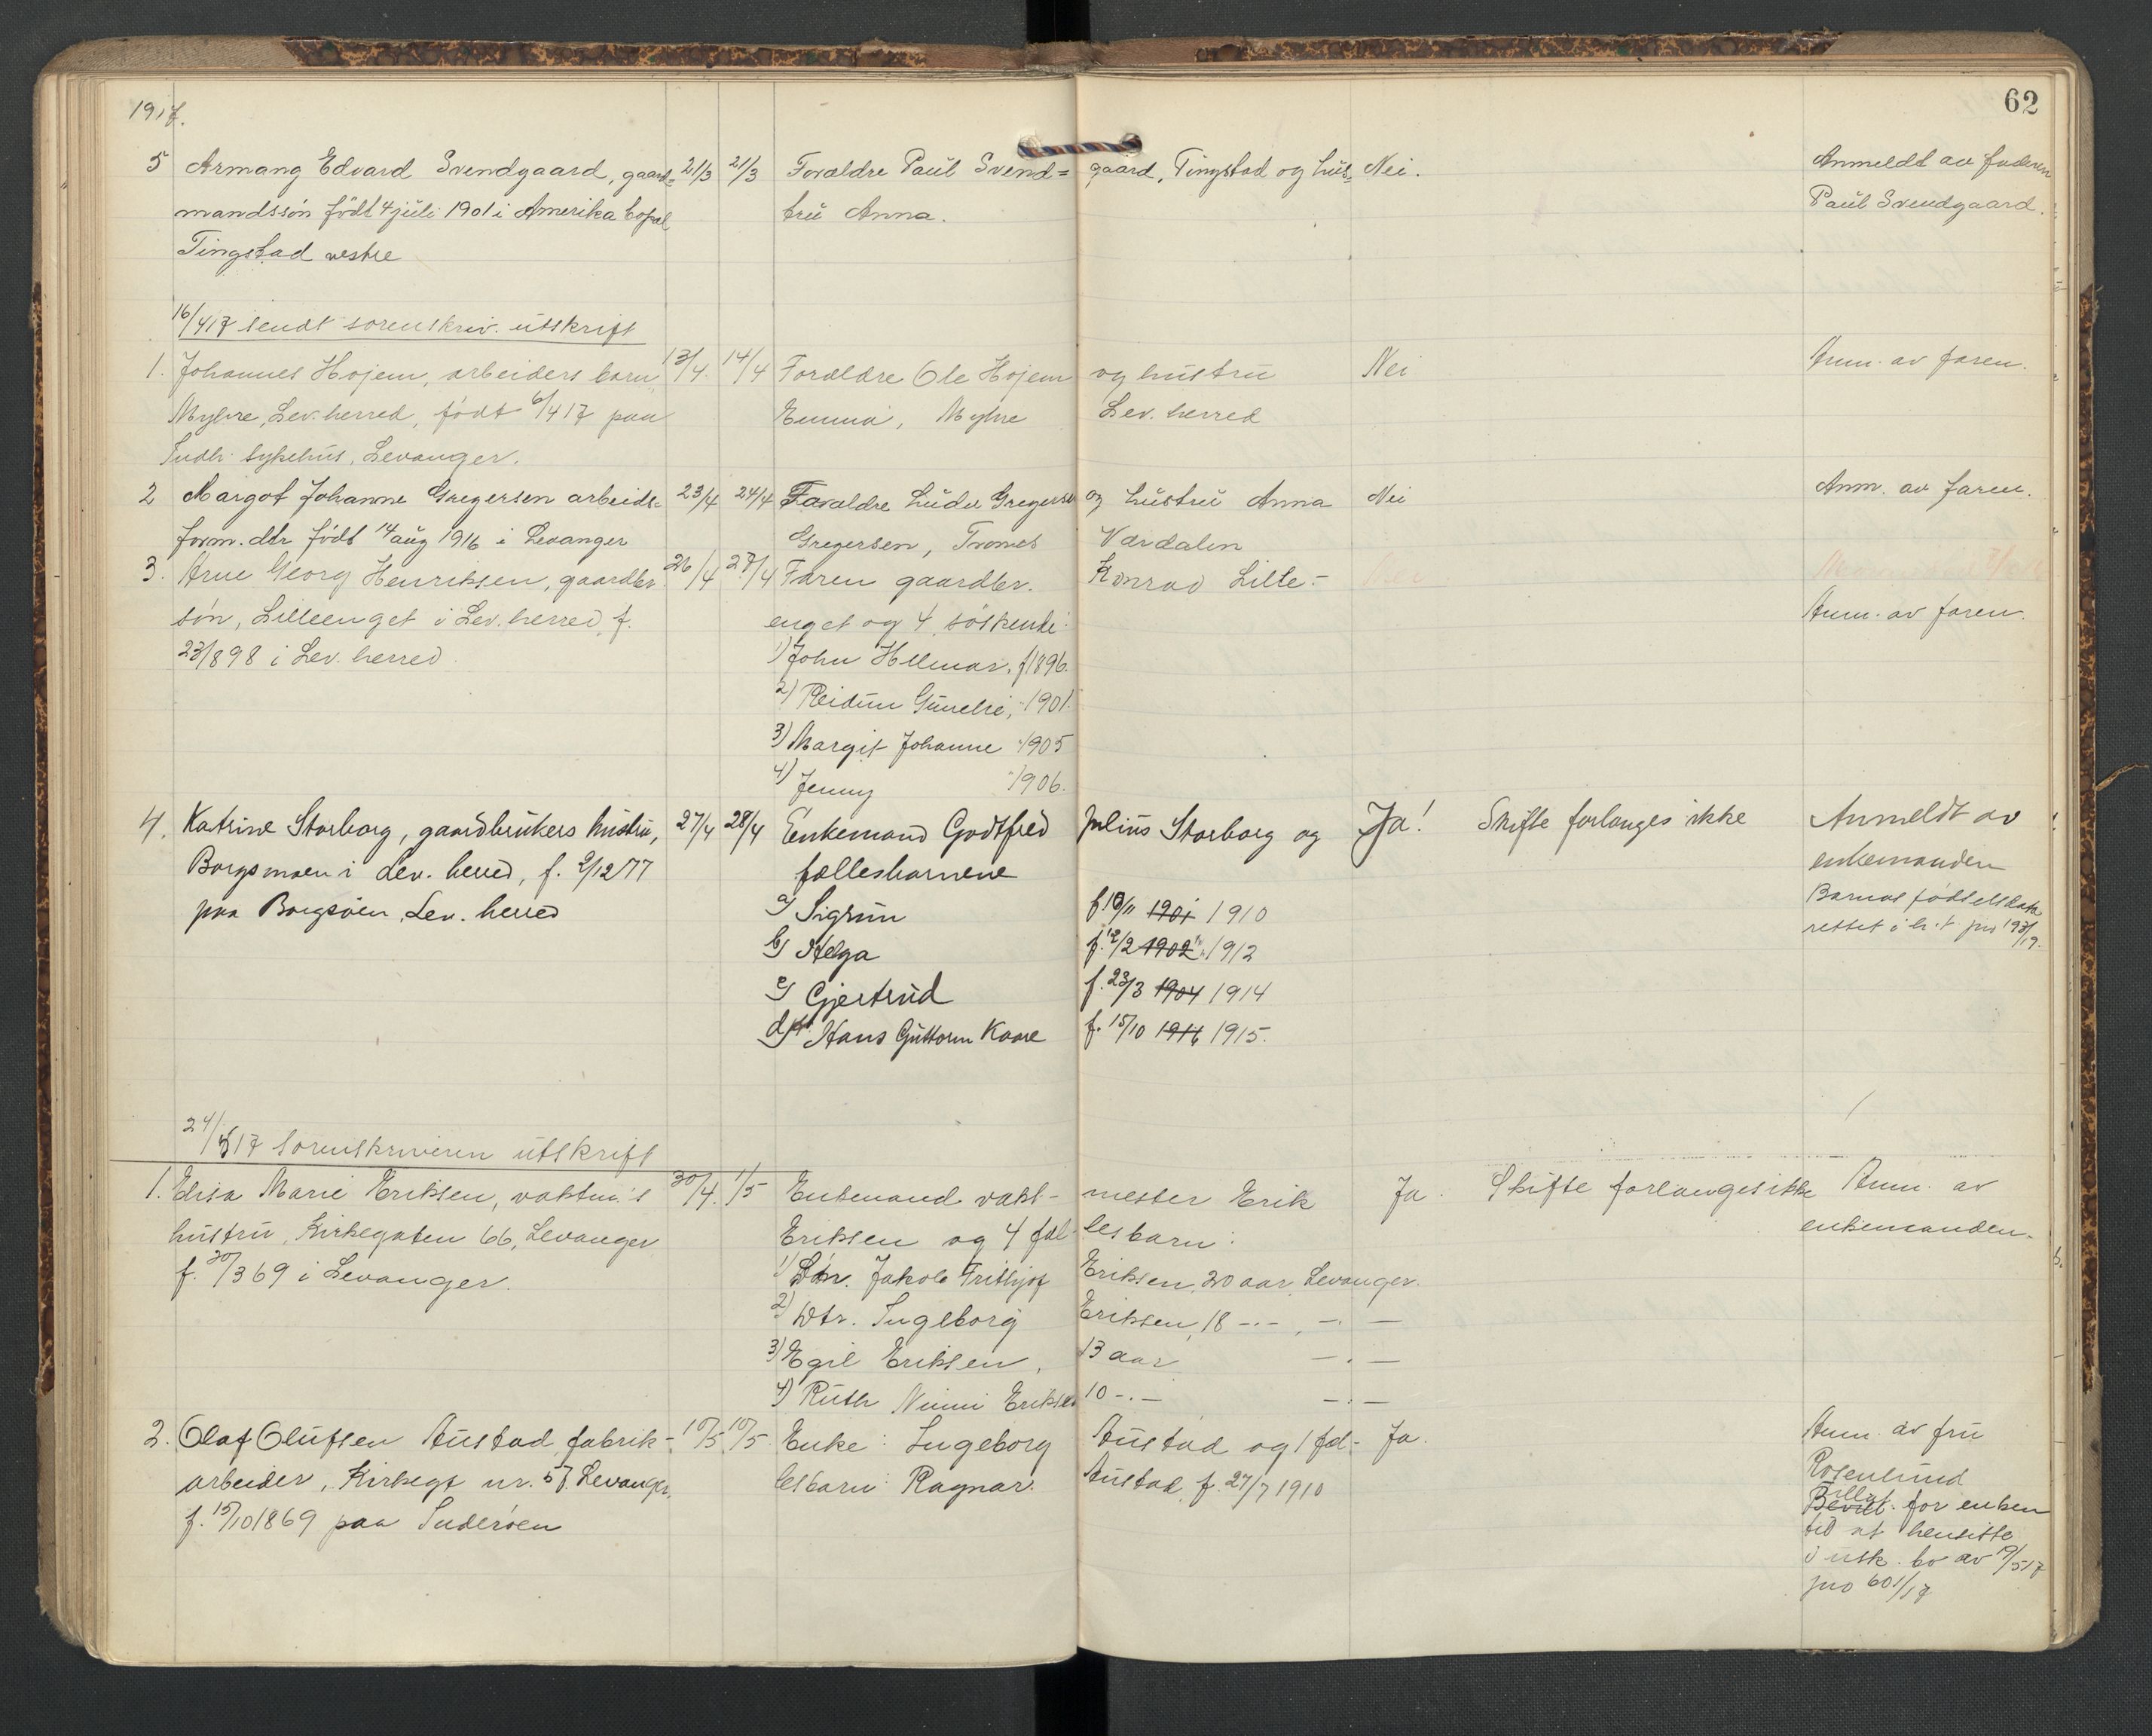 62
1917.
5 Armang Edvard Svendgaard, gaard= 21/3 21/3 Forældre Paul Svend= gaard, Tingstad og hus= Nei. Anmeldt av faderen
mandssøn født 4 juli 1901 i Amerika bopæl tru Anna. Paul Svendgaard.
Tingstad vestre
16/417 sendt sorenskriv. utskrift
1. Johannes Hojem, arbeiders barn, 13/4 14/4 Forældre Ole Hojem og hustru Nei Anm. av faren.
Myhre, Lev. herred, født 6/417 paa Emma, Myhre Lev. herred
Indh. sykehus, Levanger.
2 Margot Johanne Gregersen arbeids= 23/4 24/4 Forældre Ludv Gregersen og hustru Anna Nei Anm. av faren.
form. dtr født 14 aug 1916 i Levanger Gregersen, Tromes Værdalen
3. Arne Georg Henriksen, gaardbr. 26/4 27/4 Faren gaardbr. Konrad Lille-
søn, Lilleenget i Lev. herred, f. enget og 4 søskende: Anm. av faren.
23/898 i Lev. herred
1) John Hilmar, f 1896.
2) Reidun , 1901.
3) Margit Johanne 1905
4) Jenny 1906.
4. Katrine Storborg, gaardbrukers hustru, 27/4 28/4 Enkemand Godtfred Julius Storborg og Ja! Skifte forlanges ikke Anmeldt av
Borgsmoen i Lev. herred, f. 9/12 77 fællesbarnene enkemanden
paa Borgsøen, Lev. herred
a) Sigrun f. 10/11 1901 1910 Barnas fødselsdata
b) Helga f. 12/2 1902 1912 rettet i h. t. jnr 193/19.
c) Gjertrud f. 23/3 1904 1914
d) Hans Guttorm Kaare f. 15/10 1916 1915.
24/517 sorenskriveren utskrift
1. Elisa Marie Eriksen, vaktm.'s 30/4. 1/5 Enkemand vakt- mester Erik Ja. Skifte forlanges ikke Anm. av
hustru, Kirkegaten 66, Levanger Eriksen og 4 fæl- lesbarn: enkemanden.
f. 30/3 69 i Levanger. 1) Søn. Jakob Frithjof Eriksen, 20 aar, Levanger.
2) Dtr. Ingeborg Eriksen, 18 -.- , -. -
3) Egil Eriksen, 13 aar -.-
4) Ruth Ninni Eriksen 10 -.- -.-
2. Olaf Olufsen Austad, fabrik- 10/5 10/5 Enke: Ingeborg Austad og 1 fæl- Ja. Anm. av fru
arbeider, Kirkegt nr. 57. Levanger. lesbarn: Ragnar. Austad, f. 27/7 1910 Rosenlund
f. 15/10 1869 paa Inderøen Bevilt. for enken
til at hensitte
i usk. bo av 19/517
jno 601/17